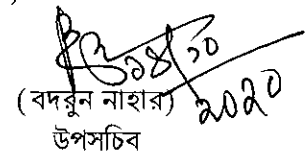 ১৪/১০
২০২০
(বদরুন নাহার)
উপসচিব